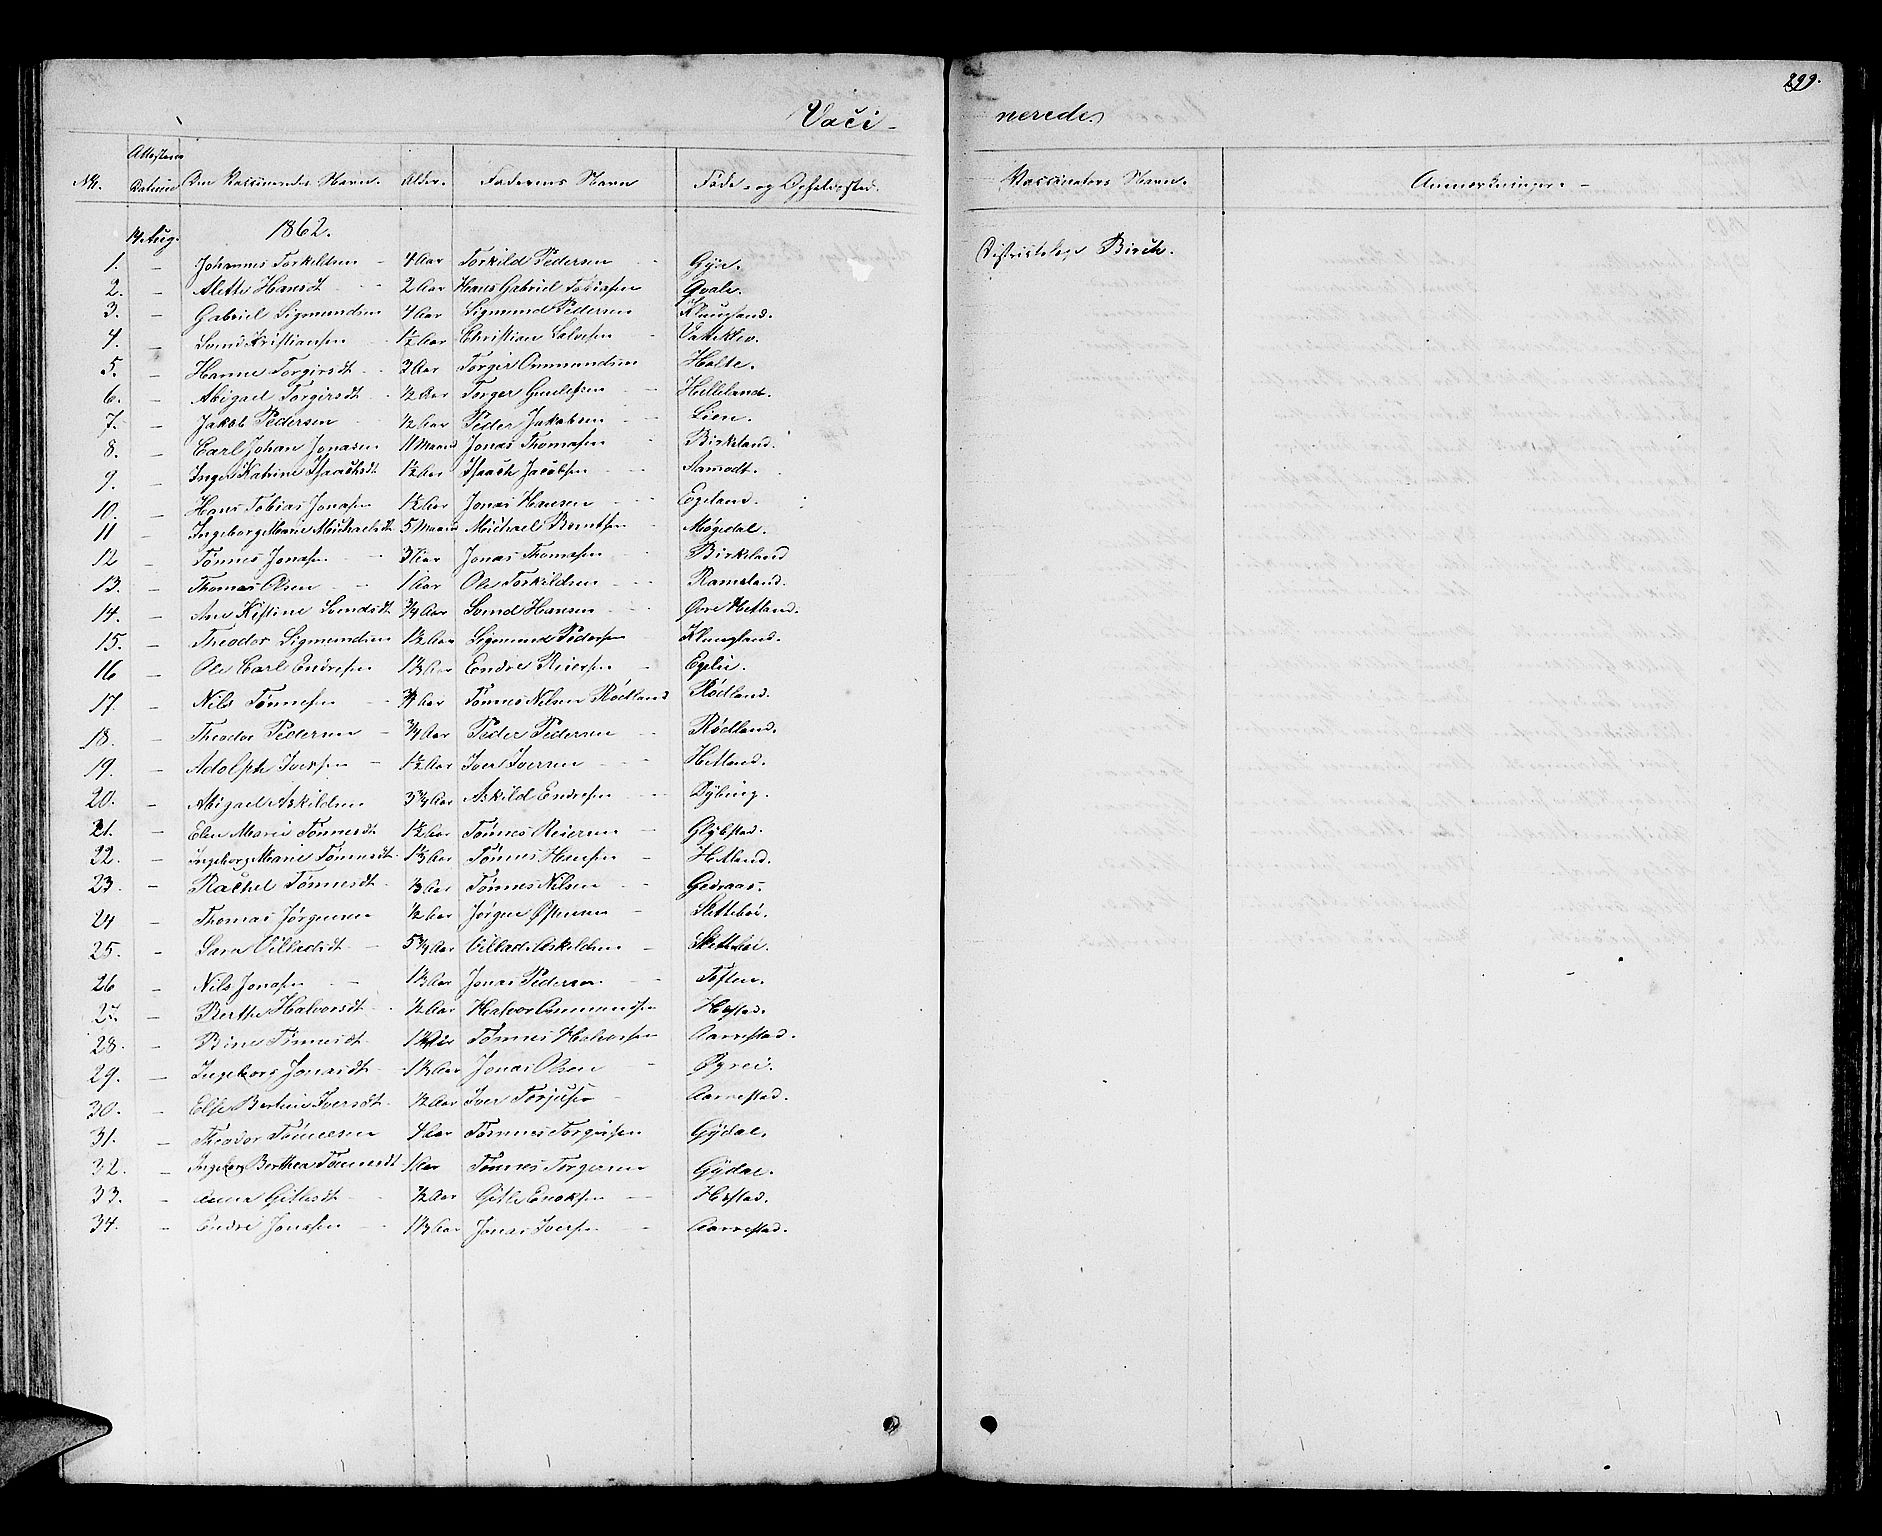 299.
Vacci- nerede
No. Attestens Datum Den Vaccineredes Navn. Alder. Faderens Navn Føde- og Opholdssted. Vaccinators Navn. Anmærkninger.
14 Aug. 1862.
Districtslæge Birch.
1. — Johannes Torkildsen 4 Aar Torkild Pedersen Gya.
2. — Alette Hansdt 2 Aar Hans Gabriel Tobiasen Qvale.
3. — Gabriel Sigmundsen 4 Aar Sigmund Pedersen Klungland.
4. — Svend Kristiansen 1½ Aar Christian Salvesen
5. — Hanne Torgirsdt 3 Aar Torgir Ommundsen Holte.
6. — Abigael Torgirsdt ½ Aar Torger Helleland.
7. — Jakob Pedersen ½ Aar Peder Jakobsen Lien.
8. — Carl Johan Jonasen 11 Maaned Jonas Thomasen Birkland.
9. — Inger Katrine Isaachsdt 1½ Aar Isaach Jacobsen Aamodt.
10. — Hans Tobias Jonasen 1½ Aar Jonas Hansen Egeland.
11 — Ingeborg Marie Michaelsdt 5 Maaned Michael Berntsen Møgedal.
12 — Tønnes Jonasen 3 Aar Jonas Thomasen Birkland
13. — Thomas Olsen 1 Aar Ole Torkildsen Ramsland.
14. — Ane Kistine Svendsdt ¾ Aar Svend Hansen Øvre Hetland.
15. — Theodor Sigmundsen 1½ Aar Sigmund Pedersen Klungland.
16 — Ole Carl Endresen Aar Endre Reiersen Egelie.
17. — Nils Tønnesen ¾ Aar Tønnes Nilsen Rødland Rødland.
18. — Theodor Pedersen ¾ Aar Peder Pedersen Rødland.
19. — Adolph Iversen 1½ Aar Iver Iversen Hetland.
20. — Abigael Askildsen 3¾ Aar Askild Endresen Dybing.
21. — Elen Marie Tønnesdt 1½ Aar Tønnes Reiersen
22. — Ingeborg Marie Tønnesdt Aar Tønnes Hansen Hetland.
23. — Rachel Tønnesdt Aar Tønnes Nilsen Gedraas.
24 — Thomas Jørgensen ½ Aar Jørgen Slettebøe.
25. — Sara Villadsdt 5¾ Aar Villads Askildsen Slettebøe.
26 — Nils Jonasen Aar Jonas Pedersen Toften.
27. — Berthe Halvorsdt ½ Aar Halvor Ommundsen Hæstad.
28. — Bine Tønnesdt Tønnes Halvorsen Aarrestad.
29. — Ingebors Jonasdt Aar Jonas Olsen Øyrei.
30. — Else Bertine Iversdt ½ Aar Iver Torjusen Aarrestad.
31. — Theodor Tønnesen 4 Aar Tønnes Torgersen Gydal.
32. — Ingebor Berthea Tønnesdt 1 Aar Tønnes Torgersen Gydal.
33. — Anna Gitlesdt ½ Aar Gitle Enoksen Hæstad.
34. — Endre Jonasen Aar Jonas Iversen Aarrestad.